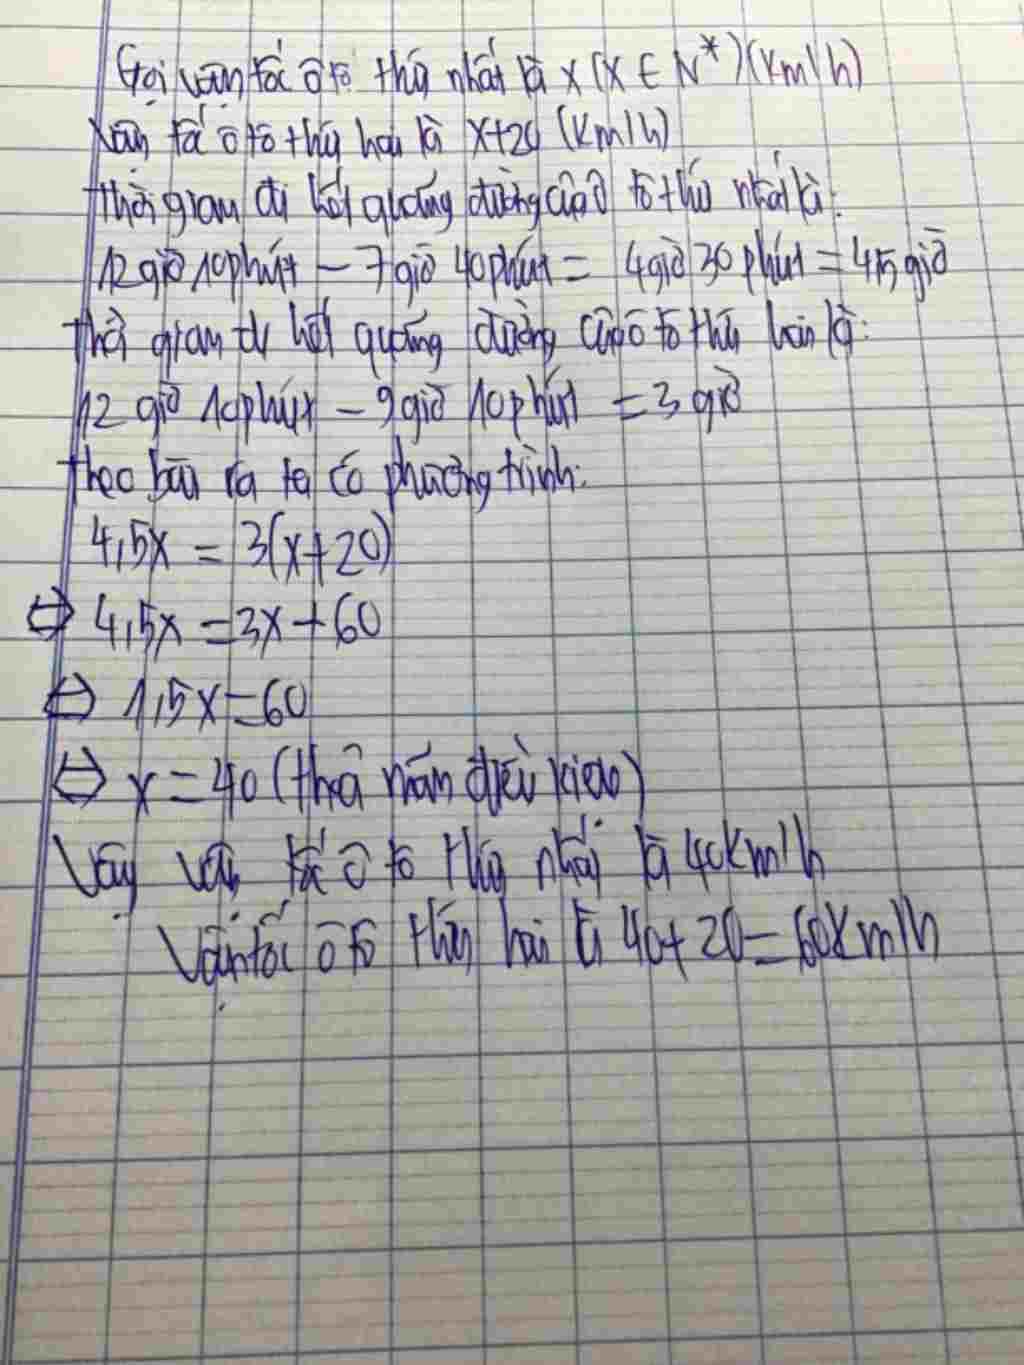 Gọi vận tốc ô tô thứ nhất là x (x ∈ N*) (km/h)
Vận tốc ô tô thứ hai là x+20 (km/h)
Thời gian đi hết quãng đường của ô tô thứ nhất là:
12 giờ 10 phút - 7 giờ 40 phút = 4 giờ 30 phút = 4,5 giờ
Thời gian đi hết quãng đường của ô tô thứ hai là:
12 giờ 10 phút - 9 giờ 10 phút = 3 giờ
Theo bài ra ta có phương trình:
4,5x = 3(x+20)
⇔ 4,5x = 3x + 60
⇔ 1,5x = 60
⇔ x = 40 (thoả mãn điều kiện)
Vậy vận tốc ô tô thứ nhất là 40km/h
Vận tốc ô tô thứ hai là 40+20=60km/h